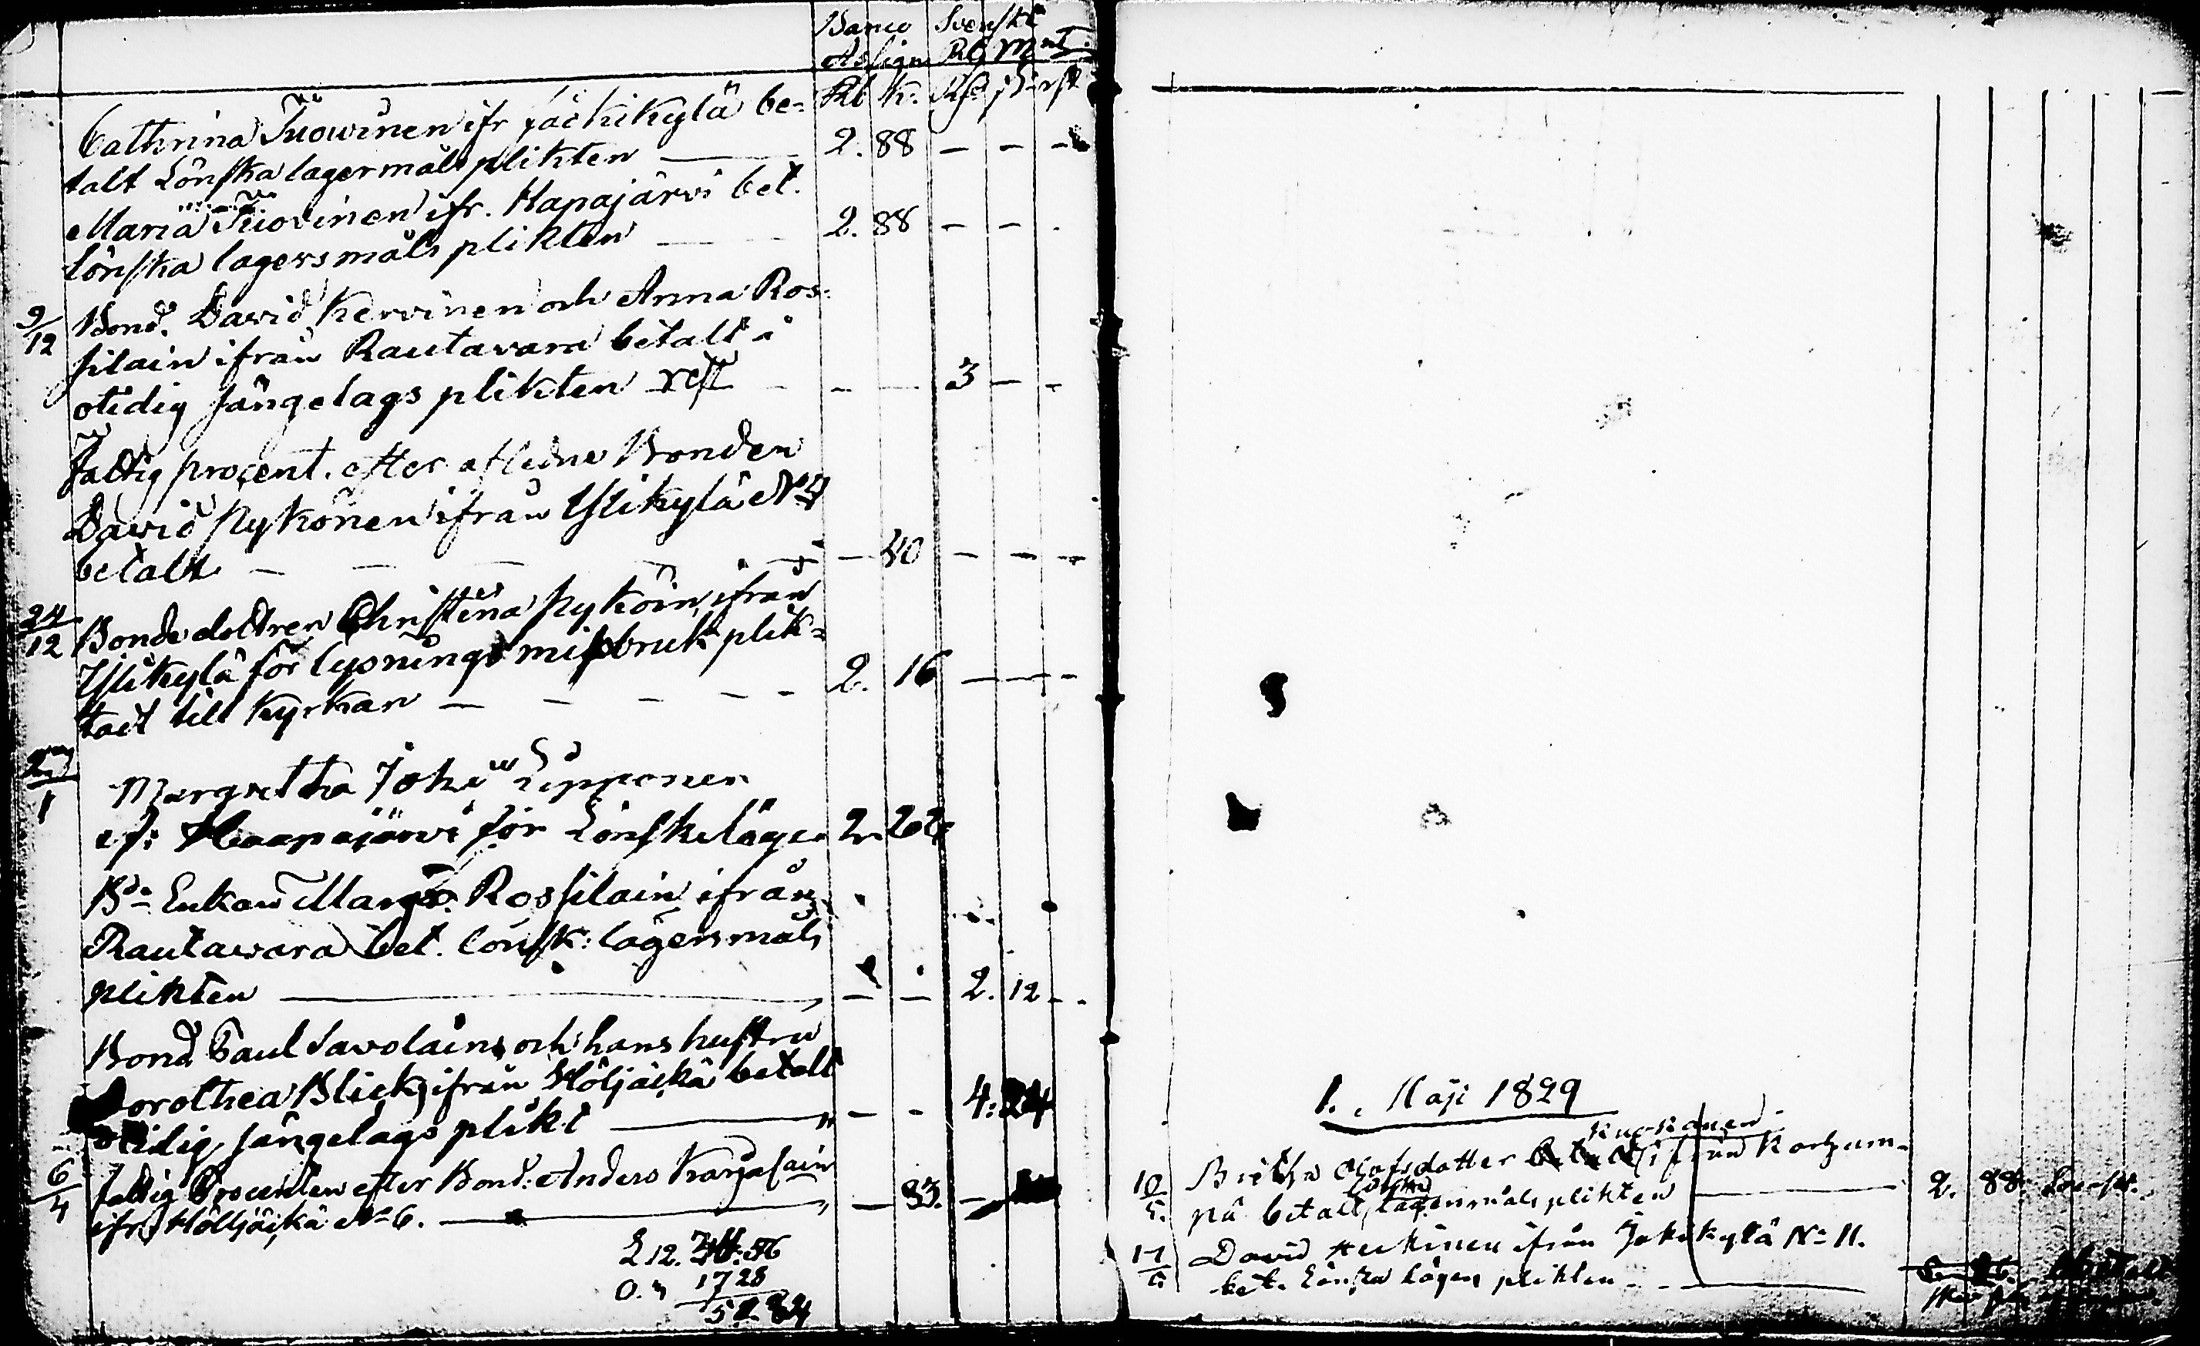 Banco Svenskt
Assign Rg mt
Rb K. Rd ß rst
Cathrina Tuowinen ifr Jäckikylä be-
talt Lönska lagermåls plikten 2. 88 - - -
Maria Tuovinen ifr. Hapajärvi bet.
Lönska lagersmåls plikten 2. 88 - - -
9/12 Bond. David Kervinen och Anna Ros-
silain ifrån Rautavara betalt i
otidig sängelags plikten rst - - 3 - -
Fattig procent. efter aflidne Bonden
David Nykönen ifrån Ylikylä No
betalt - - - - - 40 - - -
24/12 Bonde dottren Christina Nyköin, ifrån
Ylikylä för lysnings missbruk plik-
tat till Kyrkan - - - - 2. 16 - - -
27/1 Margretha Johs Lipponen
if: Haapajärvi för Lönskeläger 2. 26
Bde Enkan Marg. Rossilain ifrån
Rautavara bet. lönsk: lägersmåls
plikten - - 2. 12 -
Bond Paul Savolains och hans hustru
Dorothea Blick, ifrån Höljäkä betalt
otidig sängelags plikt - - 4: 24
6/4 Fattig Procenten efter Bond: Anders Karjalain
ifr. Höljäkä No 6. - 83. -
L 12. 56
0. " 17 28
52 84
1. Maji 1829
Kuokkanen
10/5. Britha Olofsdotter ifrån Karhum-
Lönska
på betalt lägersmåls plikten 2. 88.
17/5 David ifrån Jokikylä No 11.
bet. Lönska Lägers plikten - -